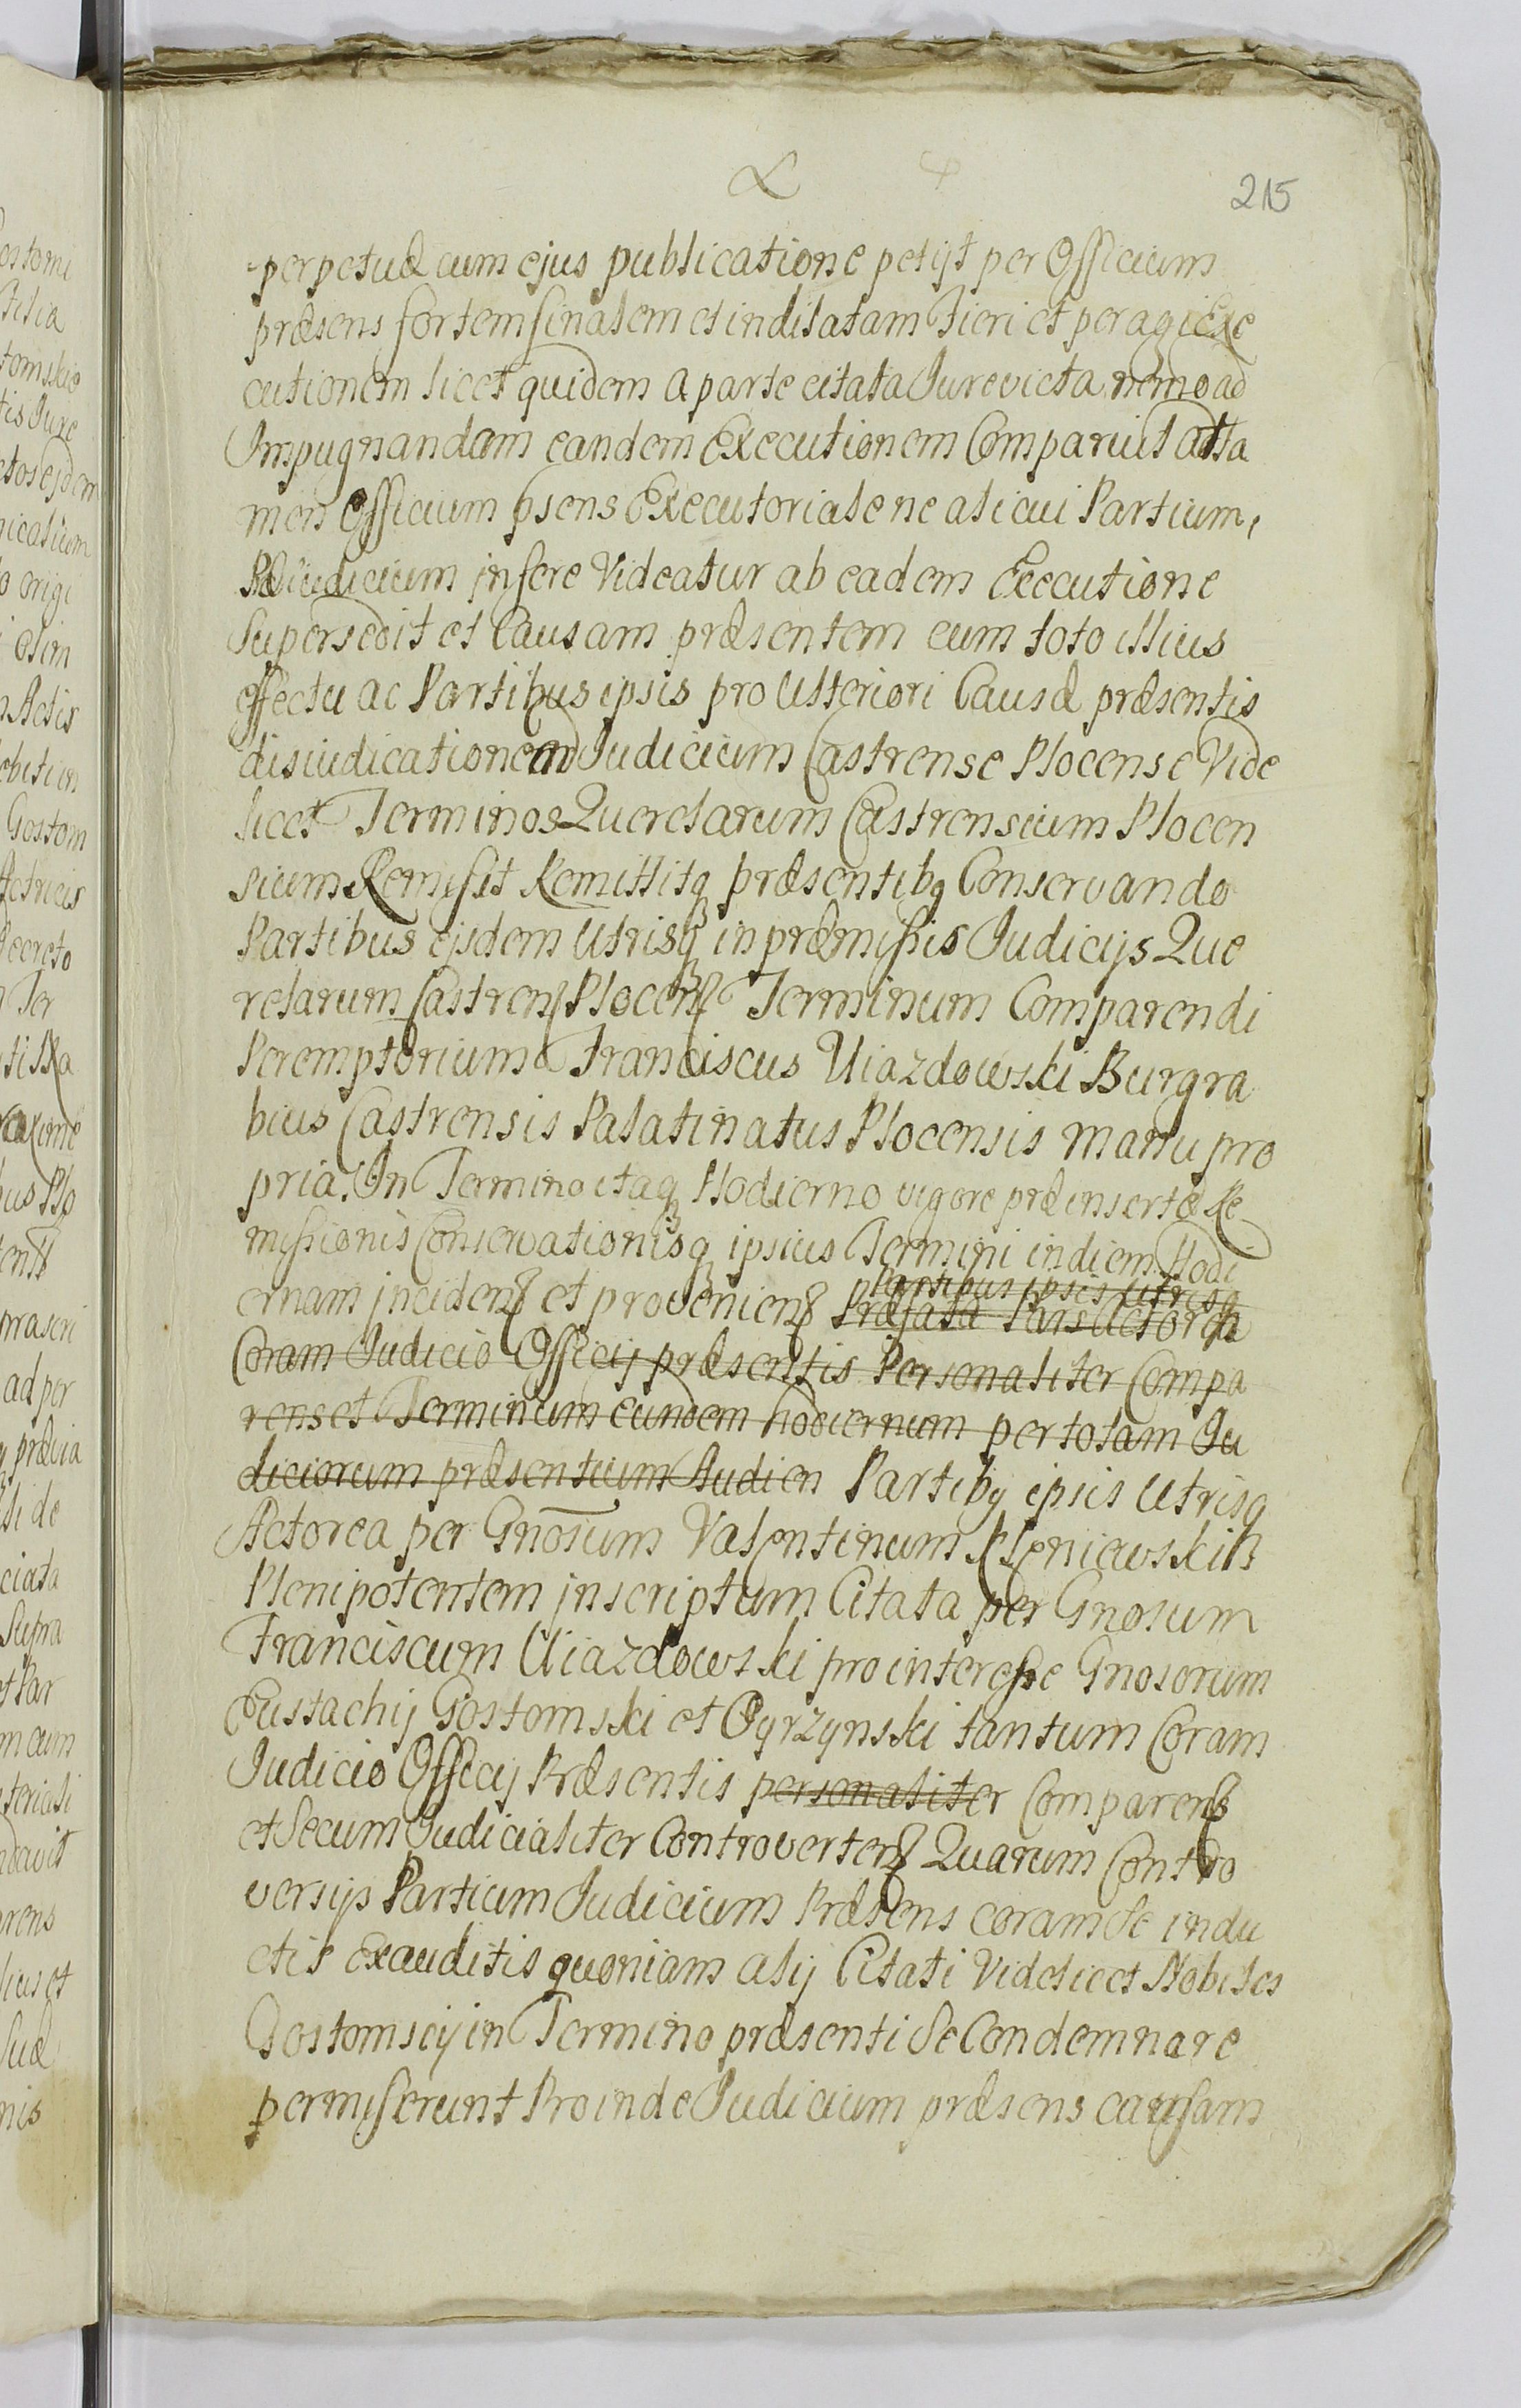 215
perpetuæ cum ejus publicatione petijt per Officium
præsens fortem finalem et indilatam Fieri et peragi Exe
cutionem licet quidem a parte citata Jurevicta nemo ad
Impugnandam eandem Executionem Comparuit atta
men Officium psens Executoriale ne alicui Partium,
Præiudicium inferre Videatur ab eadem Executione
Supersedit et Causam præsentem cum toto illius
effectu ac Partibus ipsis pro Ulteriori Causæ præsentis
disiudicatione ad Judicium Castrense Plocense Vide
licet Terminos Querelarum Castrensium Plocen
sium Remisit Remittitq præsentibq Conservando
Partibus ejsdem Utrisq in præmissis Judicijs Que
relarum Castrens Plocens Terminum Comparendi
Peremptorium Franciscus Uiazdowski Burgra
bius Castrensis Palatinatus Plocensis manu pro
pria. In Termino itaq Hodierno vigore præinsertæ Re
missionis Conservationisq ipsius Termini in diem Hodi
ernam inciden et provenien Præfata Pars Actorea
Partibus ipsis utrisq
Coram Judicio Officij præsentis Personaliter Compa
rens et Terminum eundem hodiernum per totam Ju
diciorum præsentium Audien Partibq ipsis Utrisq
Actorea per Gnosum Valentinum
Plenipotentem inscriptum Citata per Gnosum
Franciscum Uiazdowski pro interesse Gnosorum
Eustachij Gostomski et Cyrzynski tantum Coram
Judicio Officij Præsentis personaliter Comparen
et Secum Judicialiter Controverten Quarum Contro
versijs Partium Judicium Præsens coram Se indu
ctis Exauditis quoniam alij Citati Videlicet Nobiles
Gostomscij in Termino præsenti Se Condemnare
permiserunt Proinde Judicium præsens causam